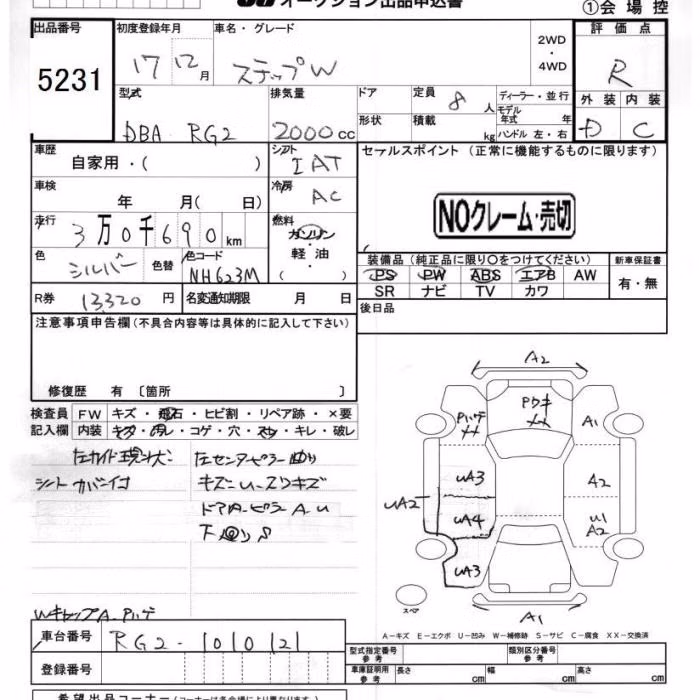 オークション出品申込書 ①会場控
出品番号 初度登録年月 車名・グレード 評価点
5231 17 12月 ステップW 2WD・4WD R
型式 排気量 ドア 定員 8人 ディーラー・並行 外装 内装
DBA RG2 2000cc 形状 積載 kg モデル年式 年 ハンドル 左・右 D C
車歴 自家用・( ) シフト IAT セールスポイント (正常に機能するものに限ります)
車検 年 月( 日) 冷房 AC NOクレーム・売切
走行 3万0千690km 燃料 ガソリン・軽油・
色 シルバー 色替 色コード NH623M 装備品(純正品に限り○をつけてください) 新車保証書
PS PW ABS エアB AW 有・無
SR ナビ TV カワ
R券 13320円 名変通知期限 月 日 後日品
注意事項申告欄(不具合内容等は具体的に記入して下さい)
修復歴 有〔箇所 〕
検査員 FW キズ・飛石・ヒビ割・リペア跡・×要
記入欄 内装 キズ・汚レ・コゲ・穴・スレ・キレ・破レ
シート
キズ
Wキャップ A
A2
A1
A2
UA3
UA2
UA4
U1
A2
UA3
A1
スペア
A−キズ E−エクボ U−凹み W−補修跡 S−サビ C−腐食 XX−交換済
車台番号 RG2-1010121 型式指定番号 参考 類別区分番号 参考
登録番号 車庫証明用 参考 長さ cm 幅 cm 高さ cm
希望出品コーナー